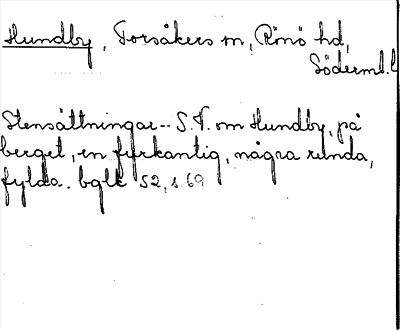 Hundby, Torsåkers sn, Rönö hd,
Söderml. l
Stensättningar-- S.V. om Hundby, på
berget, en fyrkantig, några runda,
fyllda. bgll 52, s. 69